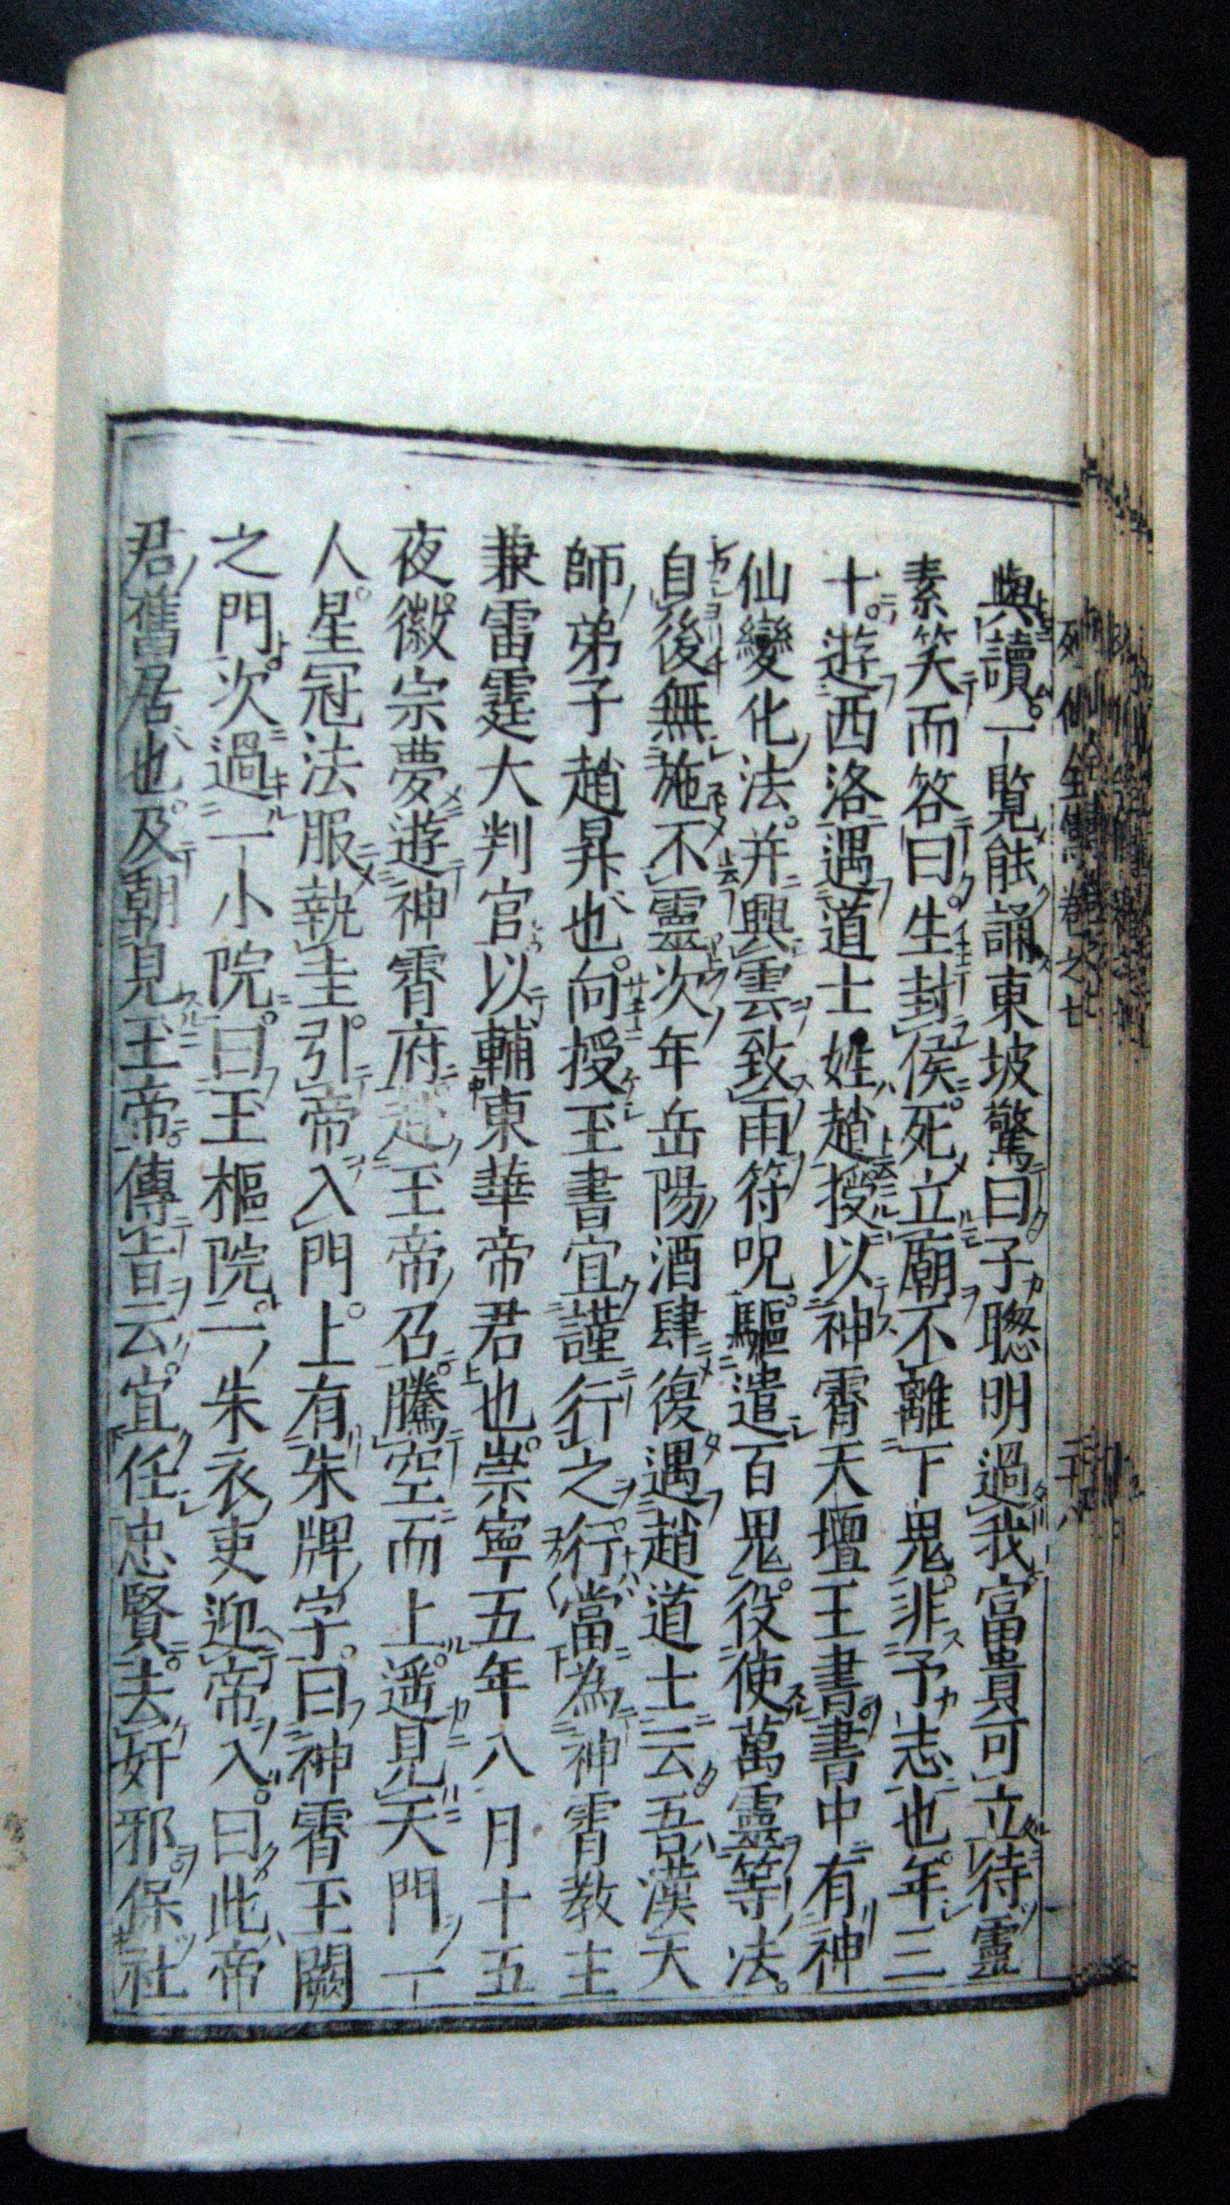 與讀一覽能誦東坡驚曰子聰明過我富貴可立待靈
素笑而答曰生封侯死立廟不離下鬼非予志也年三
十遊西洛遇道士姓趙授以神霄天壇王書書中有神
仙變化法并興雲致雨符呪驅遣百鬼役使萬靈等法
自後無施不靈次年岳陽酒肆復遇趙道士云吾漢天
師弟子趙昇也向授玉書宜謹行之行當為神霄教主
兼雷霆大判官以輔東華帝君也崇寧五年八月十五
夜徽宗夢遊神霄府赴玉帝召騰空而上遥見天門一
人星冠法服執圭引帝入門上有朱牌字曰神霄玉闕
之門次過一小院曰玉樞院一朱衣吏迎帝入曰此帝
君舊居也及朝見玉帝傳旨云宜任忠賢去奸邪保社
列仙全傳卷之七 二十八